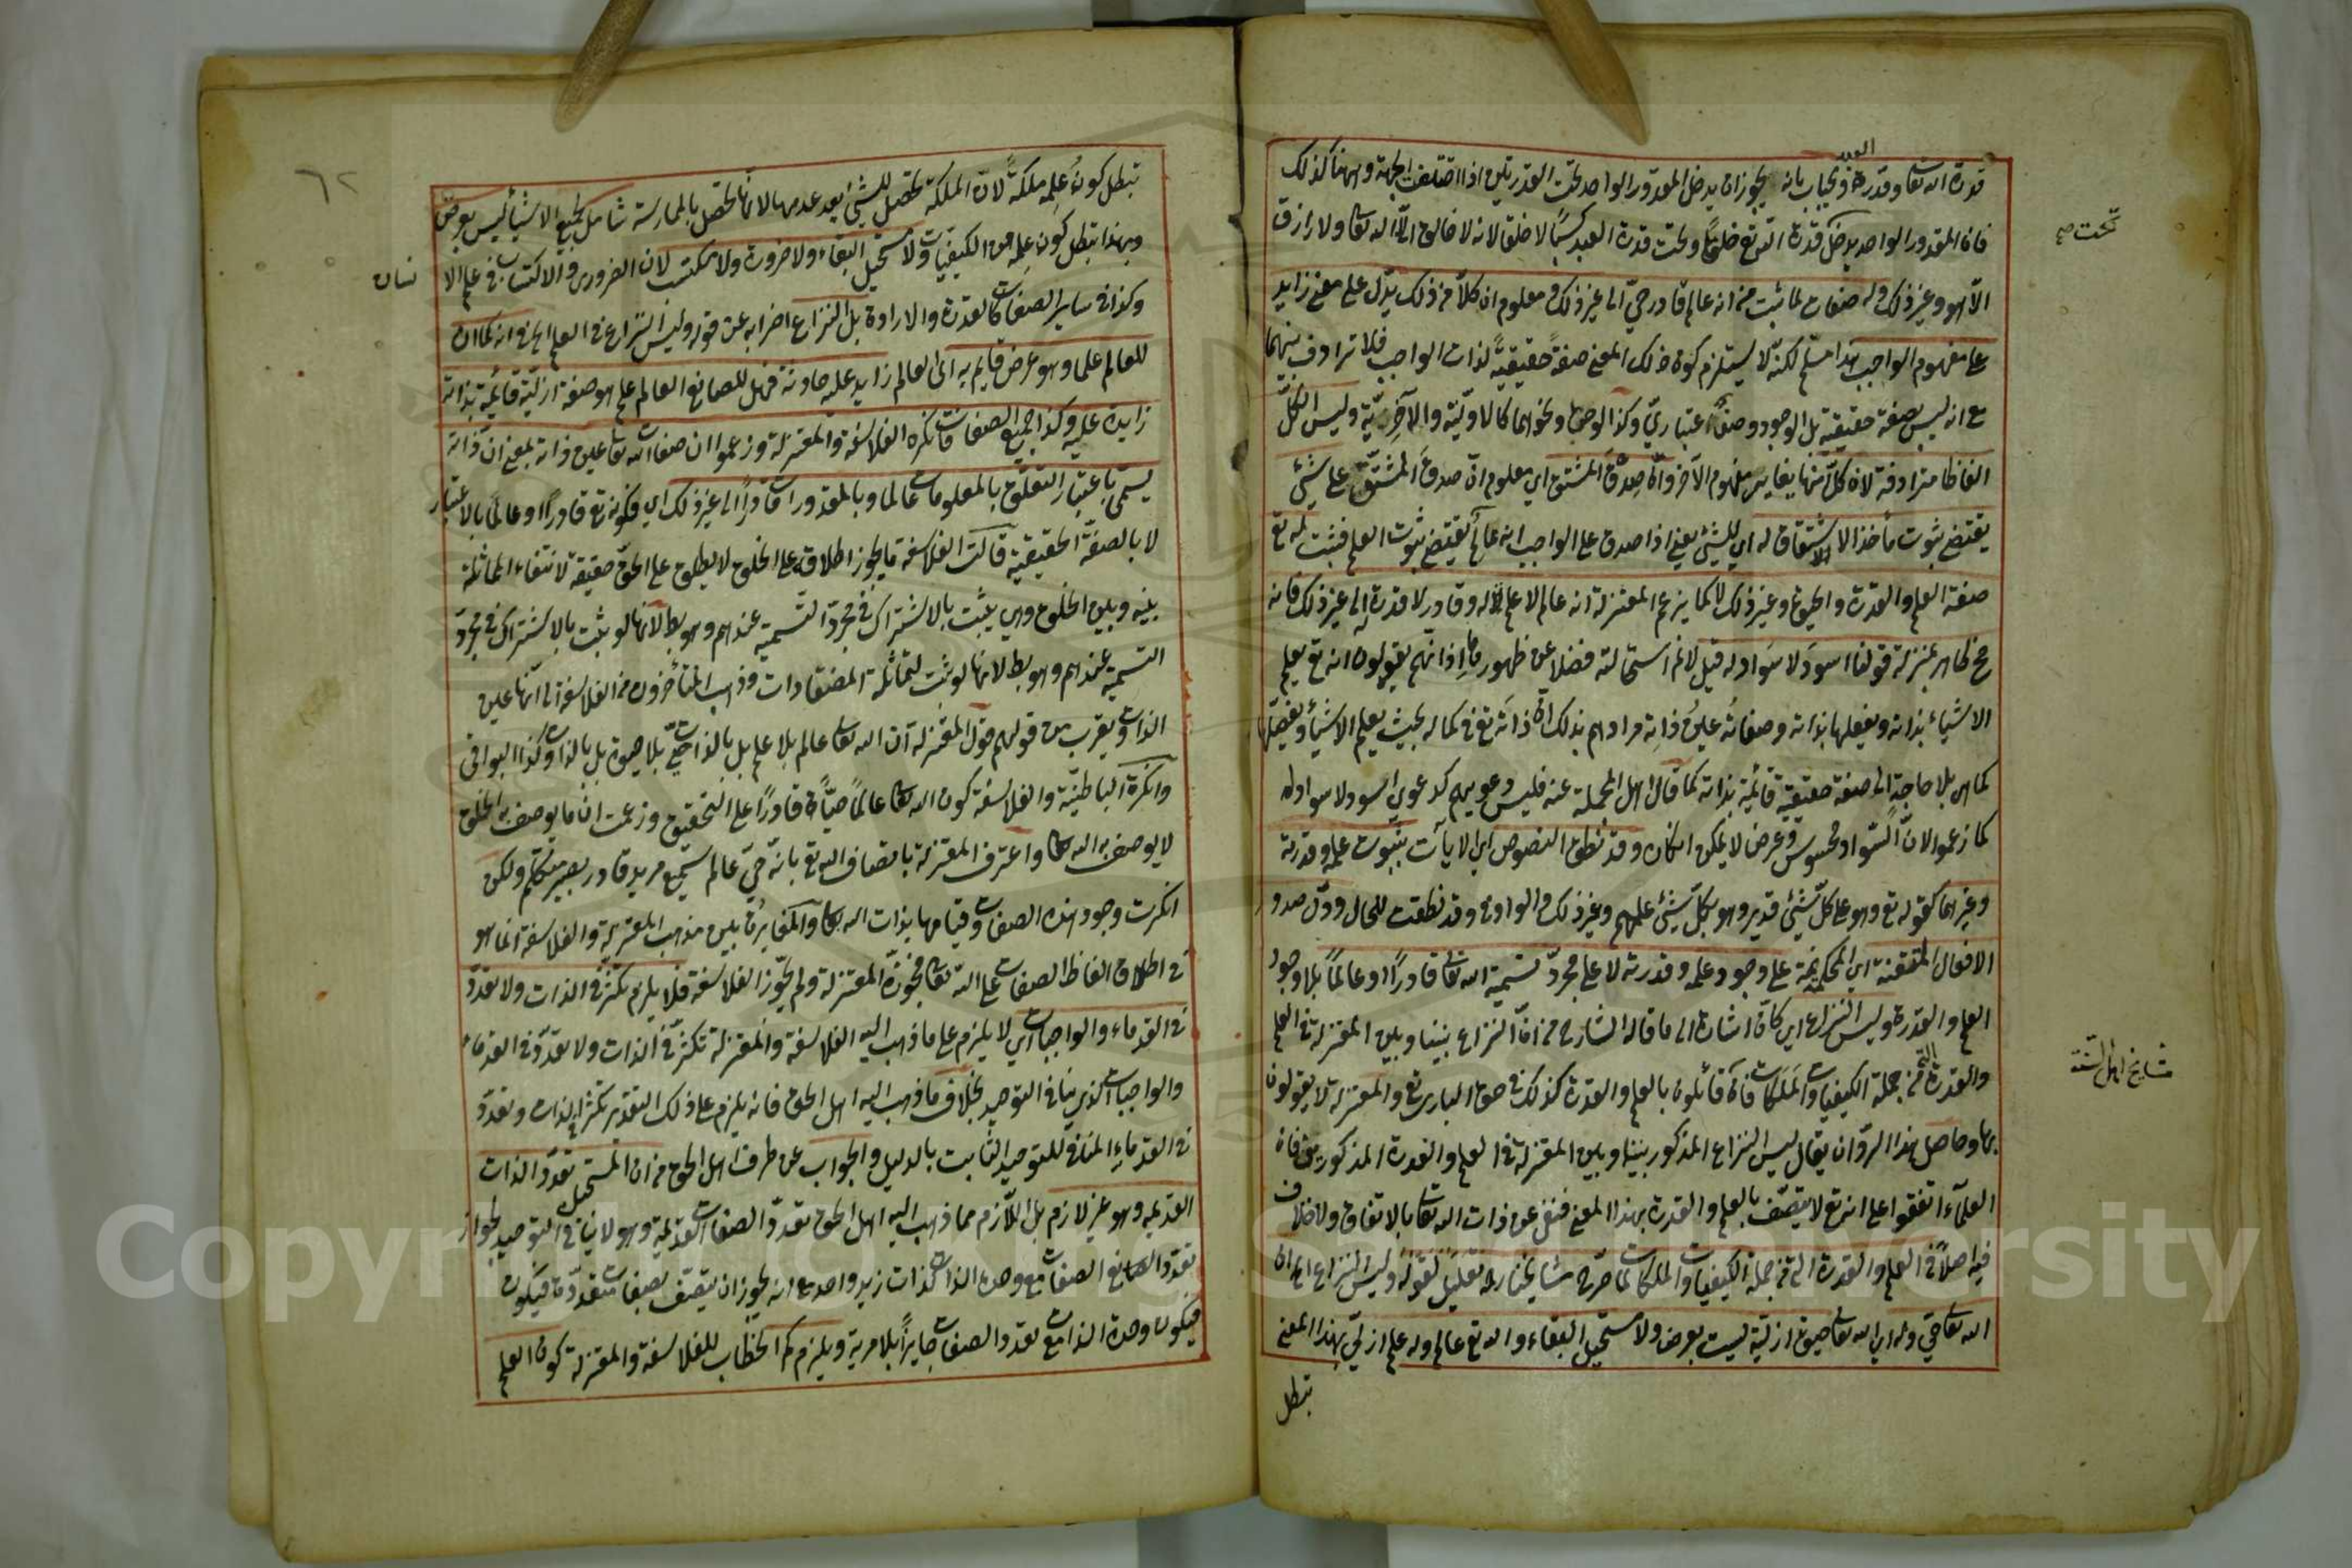 قدرة الله تعا وقدرة العبد ويجاب بانه يجوز ان يدخل المقدور الواحد تحت القدرتين اذا اختلفت الجهة وههنا كذلك
فان المقدور الواحد يدخل قدرة الله تع خلقًا وتحت قدرة العبد كسبًا لا خلقا لانه لا خالق الا الله تعا ولا رازق
تحت صح
الا هو وغير ذلك وله صفات لما ثبت من انه عالم قادر حيّ الى غير ذلك ومعلوم ان كلاّ من ذلك يدّل على معنى زايد
على مفهوم الواجب هذا مسلّم لكنّه لا يستلزم كون ذلك المعنى صفةً حقيقيةً لذات الواجب فلا ترادف بينهما
مع انه ليس بصفة حقيقية بل الوجود وصفٌ اعتباريّ وكذا الوجوب ونحوهما كالاوّلية والآخريّة وليس الكلّ
الفاظا مترادفة لان كلّ منها يغاير مفهوم الآخر وانّ صِدقَ المشتق اي معلوم انّ صدق المشتقّ على شئ
يقتضي ثبوت مأخذ الاشتقاق له اي للشئ يعني اذا صدق على الواجب انه عالمٌ يقتضي ثبوت العلم فثبت له تع
صفة العلم والقدرة والحيوة وغير ذلك لا كما يزعم المعتزلة انه عالم لا علم له وقادر لا قدرة له الى غير ذلك فانه
مح ظاهر بمنزلة قولنا اسود لا سَواد له قيل لا نم استحالته فضلا عن ظهورها اذ انهم يقولون انه تع يعلم
الاشياء بذاته ويفعلها بذاته وصفاتهُ عينُ ذاتِه مرادهم بذلك انّ ذاتَه تع في كماله بحيث يعلم الاشياء ويفعلها
كما هي بلا حاجةٍ الى صفة حقيقية قائمة بذاته كما قال اهل الجملة عنه فليس دعويهم كدعوي اسود لا سواد له
كما زعموا لانّ السّواد محسوس وعرض لا يمكن انكاره وقد نطق النصوص اي الايات بثبوت علمه وقدرته
وغيرهما كقوله تع وهو على كلّ شئ قدير وهو بكلّ شئ عليم وغير ذلك والواو في وقد نطقت للحال ودلّ صدور
الافعال المتقنة اي المحكمة على وجود علمه وقدرته لا على مجرّد تسمية الله تعا قادرًا وعالماً بلا وجود
العلم والقدرة وليس النزاع اي كأنّ اشارة الى ما قاله الشارح من انّ النزاع بيننا وبين المعتزلة في العلم
والقدرة التي من جملة الكيفيات والملكات فانّا قائلون بالعلم والقدرة كذلك في حق الباري تع والمعتزلة لا يقولون
مشايخ اهل السنّة
بها وحاصل هذا الردّ ان يقال ليس النزاع المذكور بيننا وبين المعتزلة في العلم والقدرة المذكورين فان
العلمآء اتفقوا على انه تع لا يتصّف بالعلم والقدرة بهذا المعنى فنفى عن ذات الله تعا بالاتفاق ولا خلاف
فيه اصلاً في العلم والقدرة التي من جملة الكيفيات والملكات لما صرّح مشايخنا ره تعليل لقوله وليس النزاع الخ ان
الله تعا حيّ وله اي الله تعا حيوة ازليّة ليست بعرض ولا مستحيل البقاء والله تع عالم وله علم ازليّ بهذا المعنى
تبطل
٦٢
تبطل كونُ عِلمه ملكةً لان الملكة تحصل للشئ بعد عدمها لانها تحصل بالممارسة شامل لجميع الاشيأ ليس بعرض
وبهذا تبطل كون علمه من الكيفيات ولا مستحيل البقاء ولا ضرورة ولا مكتسب لان الضروري والاكتساب في علم الا
نسان
وكذا في ساير الصفات كالقدرة والارادة بل النزاع اضراب عن قوله وليس النزاع في العلم الخ في انه كما ان
للعالم علما وهو عرض قايم به اى العالم زايد عليه حادثة فهل للصانع العالم علم هو صفة ازليّة قائمة بذاته
زايدة عليه وكذا جميع الصفات فانكره الفلاسفة والمعتزلة وزعموا ان صفات الله تعا عين ذاته بمعنى انّ ذاته
يسمّى باعتبار التعلّق بالمعلومات عالما وبالمقدورات قادرًا الى غير ذلك اي فكونه تع قادرًا وعالمًا بالاعتبار
لا بالصفة الحقيقية قالت الفلاسفة ما يجوز اطلاقه على الخلق لا يطلق على الحقّ حقيقة لانتفاء المماثلة
بينه وبين الخلق وهي يثبت بالاشتراك في مجرّد التّسمية عندهم وهو بط لانها لو يثبت بالاشتراك في مجرّد
التسمية عندهم وهو بط لانها لو يثبت لتماثلت المتضادات وذهب المتأخرون من الفلاسفة الى انّها عين
الذات ويقرب من قولهم قول المعتزلة ان الله تعا عالم بلا علم بل بالذات حيّ بلا حيوة بل بالذات وكذا البواقي
وانكرة الباطنيّة والفلاسفة كون الله تعا عالمًا حيًّا قادرًا على التحقيق وزعمت انّ ما يوصف به الخلق
لا يوصف به الله تعا واعترف المعتزلة باتصاف الله تع بانّه حيّ عالم سميع مريد قادر بصير متكلم ولكن
انكرت وجود هذه الصفات وقيامها بذات الله تعا والمغايرة بين مذهب المعتزلة والفلاسفة انما هو
في اطلاق الفاظ الصفات على الله تعا فجوّزه المعتزلة ولم يجوّز الفلاسفة فلا يلزم تكثّر في الذات ولا تعدّد
في القدماء والواجبات اي لا يلزم على ما ذهب اليه الفلاسفة والمعتزلة تكثرّ في الذات ولا تعدّد في القدماء
والواجبات الذي ينافي التوحيد بخلاف ما ذهب اليه اهل الحق فانه يلزم على ذلك التقدير تكثر في الذات وتعدّد
في القدماءِ المنافي للتوحيد الثابت بالدليل والجواب عن طرف اهل الحق من ان المستحيل تعدّد الذات
القديمة وهو غير لازم بل اللّازم مما ذهب اليه اهل الحق تعدّد الصفات القديمة وهو لا ينافي التوحيد لجواز
تعدد الصفات مع وحدة الذات كذات زيد واحد مع انه يجوز ان يتصّف بصفات متعدّدة فيكون
فيكون وحدة الذات مع تعدد الصفات جايزًا بلا مرية ويلزمكم الخطاب للفلاسفة والمعتزلة كون العلم
Copyright © King Saud University